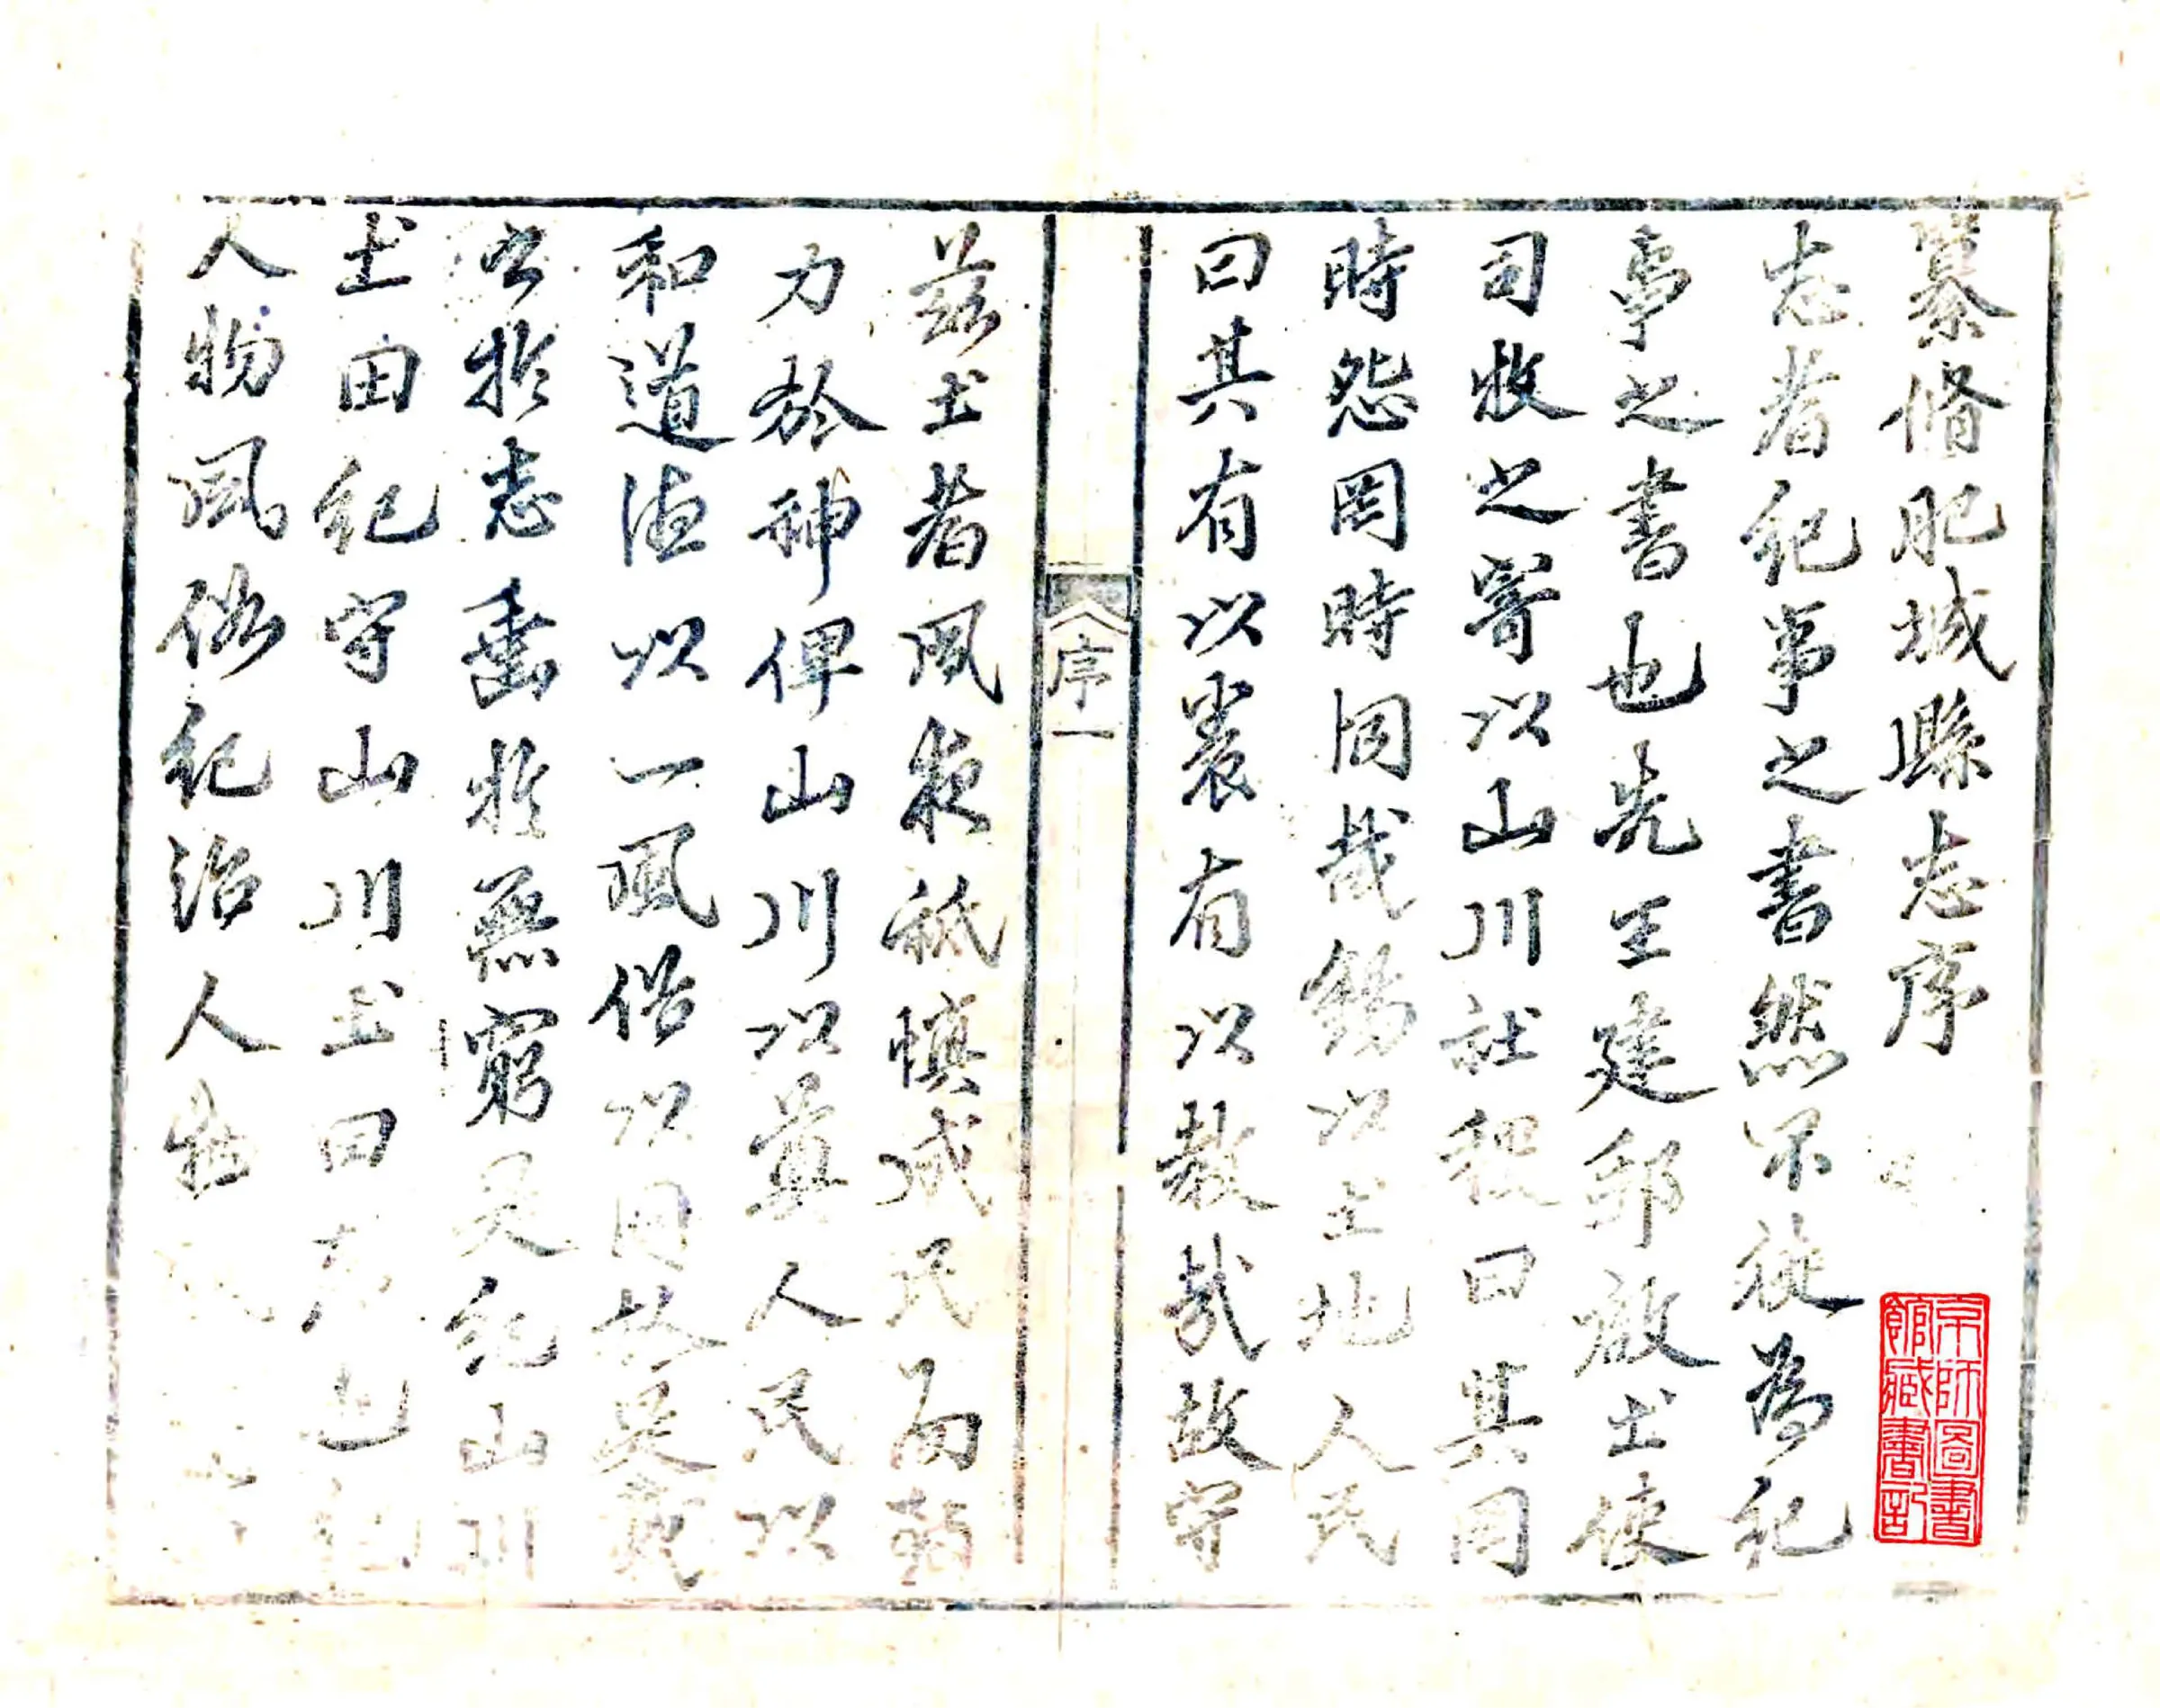 纂脩肥城縣志序
志者紀事之書然不徒為紀
事之書也先王建邦啟土使
司牧之寄以山川社稷曰其罔
時怨罔時恫哉錫以土地人民
曰其有以養有以教哉故守
茲土者夙夜祗愼咸民而
力於神俾山川以奠人民以
和道德以一風俗以同故
公於志垂於無窮是紀山川
土田紀守山川土田
人物風俗紀治人物
序一
京師圖書
館藏書記